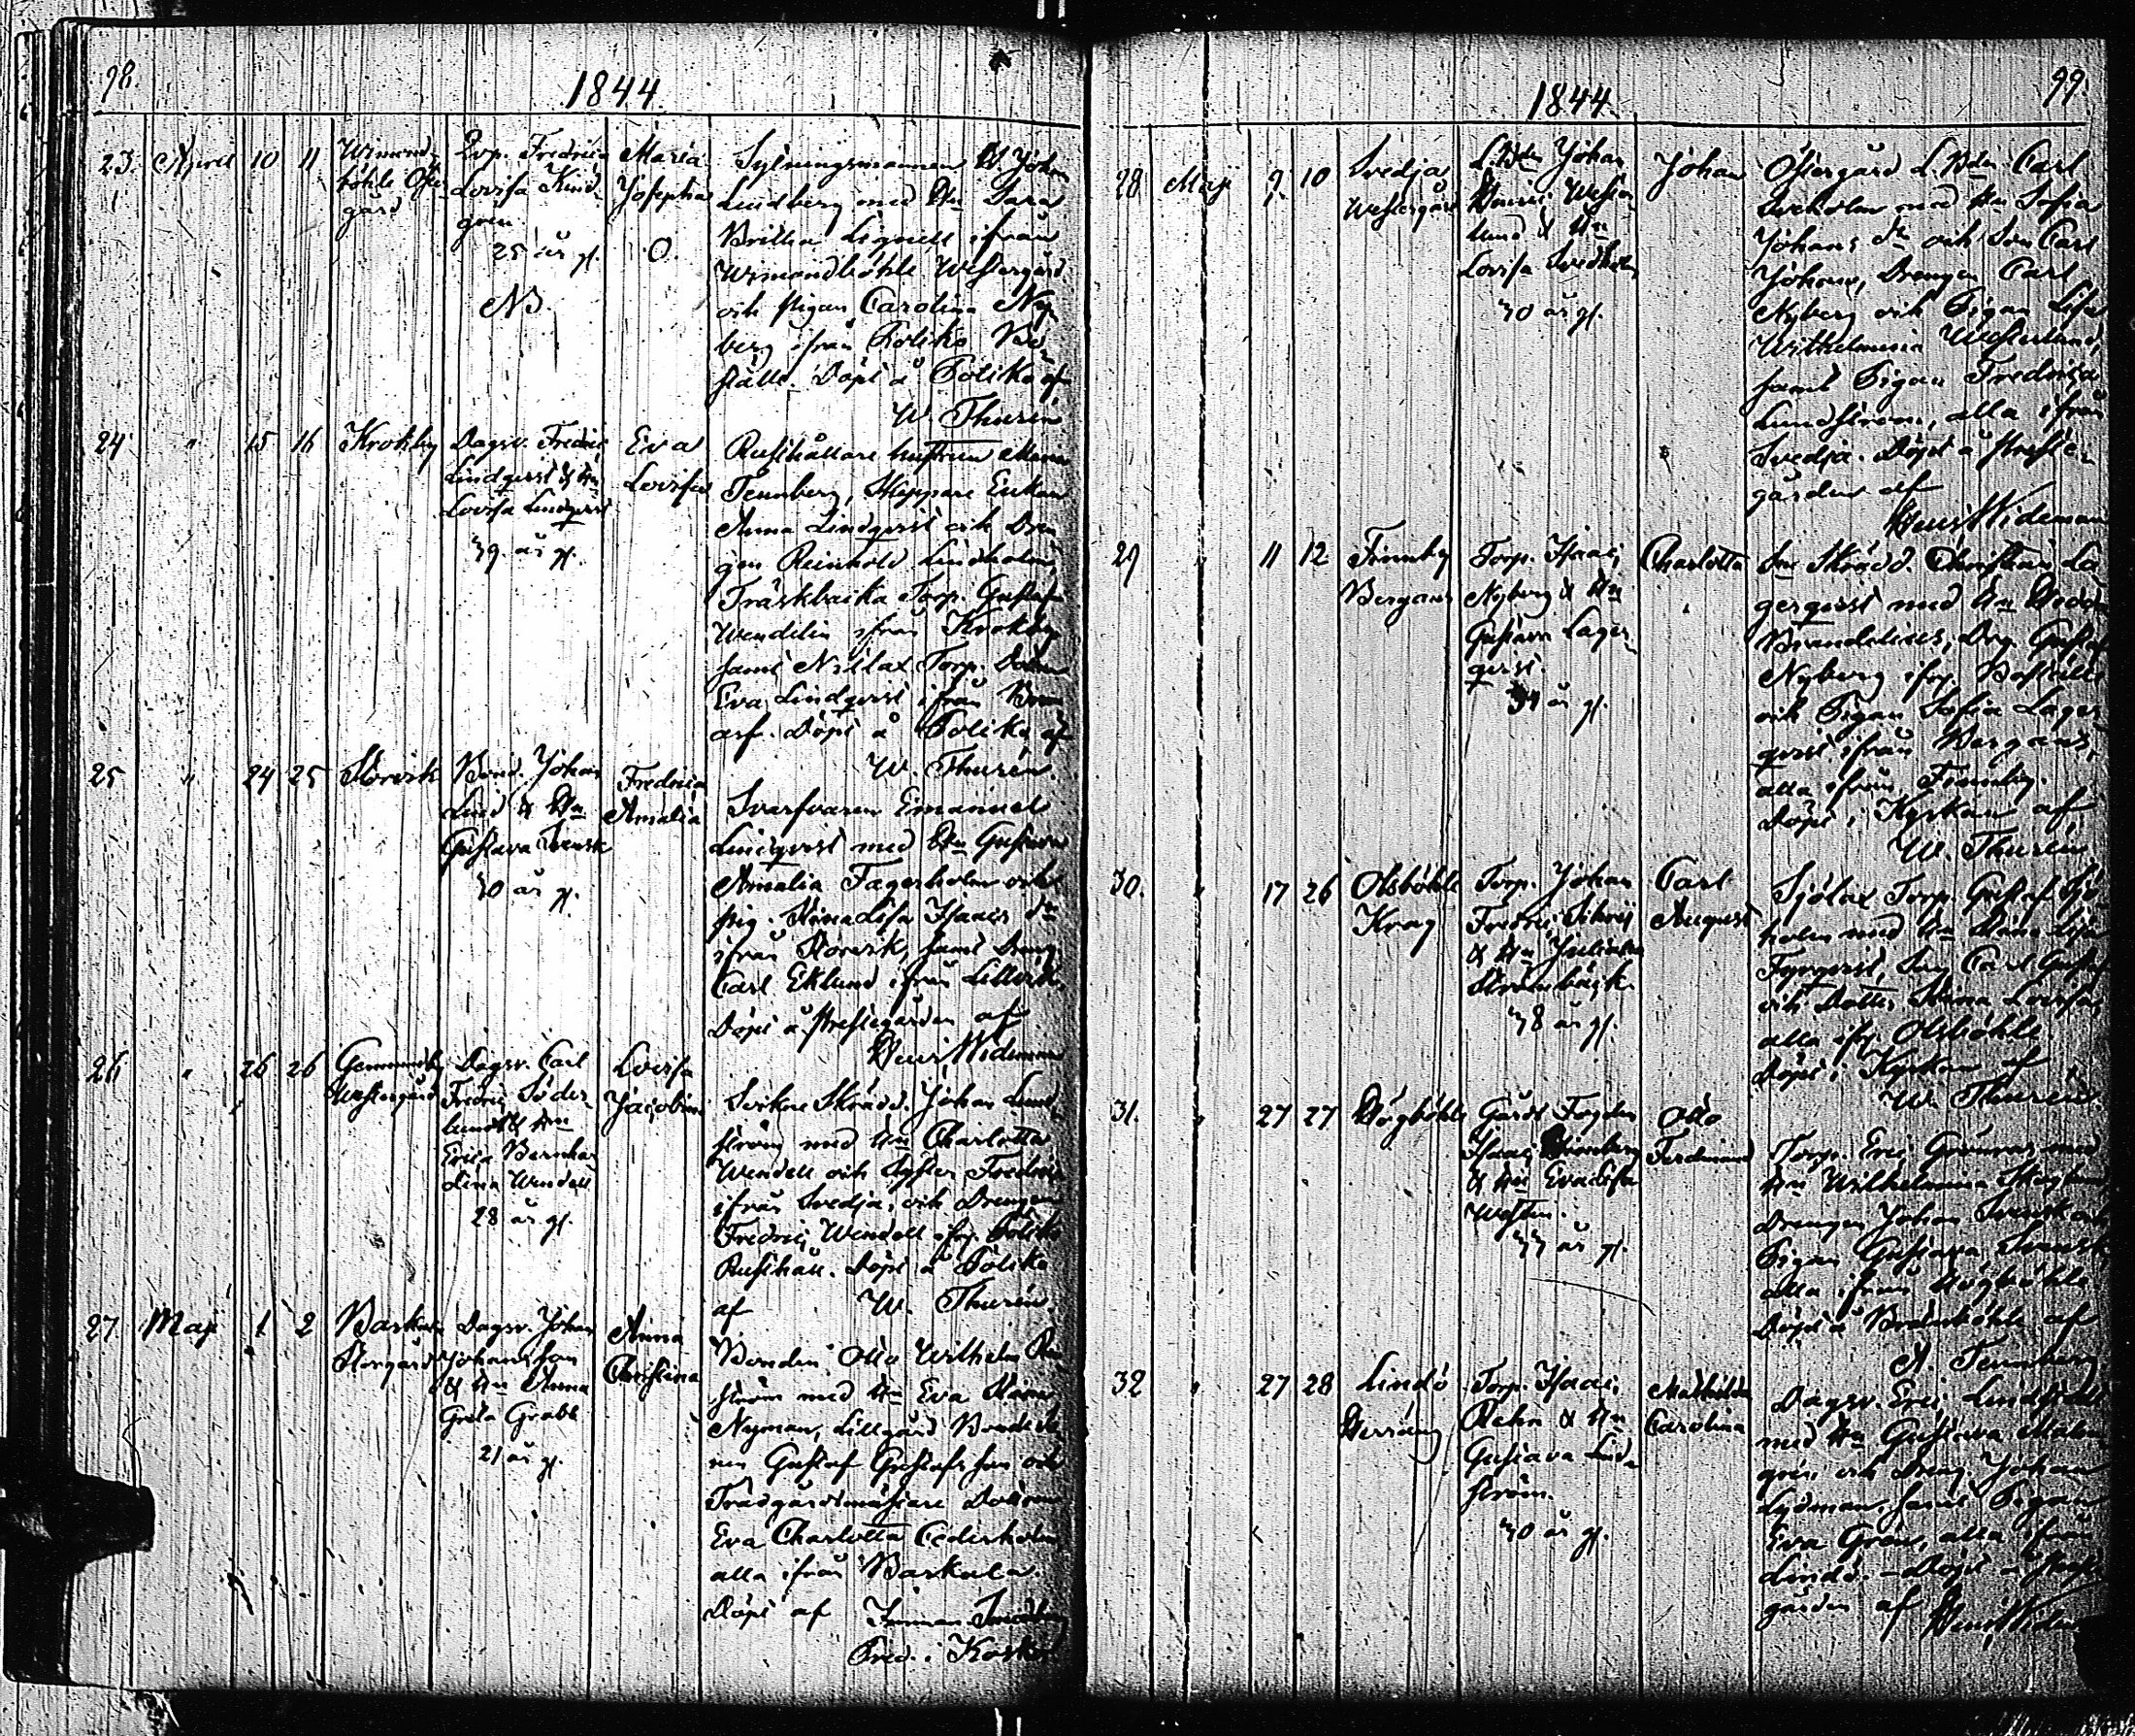 98.
1844
23. April 10 11
Wimond-
böhle Öster-
gård
Qvp. Fredrica
Lovisa Kind-
gren
25 år gl.
NB.
Maria
Josepha
O.
Sylningsmannen Johan
Lindberg med Hu Sara
Britha Lignell ifrån
Wimondböhle Westergård
och pigan Carolina Ny-
berg ifrån Tolikå Bo-
ställe. Döpt å Tolikå af
W. Thurén
24 " 15 16
Krokby
Dagsv. Fredric
Lindqvist & Hu
Lovisa Lindqvist
39 år gl.
Eva
Lovisa
Rusthållare hustrun Maria
Tennberg, Skeppare Enkan
Anna Lindqvist och Dren-
gen Reinhold Lindholm,
Träskbacka Torp. Gustaf
Wendelin ifrån Krokby
samt Nisslax Torp. Dottren
Eva Lindqvist ifrån Brom-
arf. Döpt å Tolikå af
W. Thurén.
25 " 24 25
Storvik
Bond. Johan
Lind & Hu
Gustava Svensk
30 år gl.
Fredrica
Amalia
Svarfvaren Emanuel
Lindqvist med Hu Gustava
Amalia Fagerholm och
pig. Stinalisa Isaacs dr
ifrån Storvik, samt Dreng
Carl Eklund ifrån Lillvik.
Döpt å Prestegården af
Henric Wideman
26 " 26 26
Gennarby
Westergård
Dagsv. Carl
Fredric Söder-
lund & Hu
Erica Bernhar-
dina Wendell
28 år gl.
Lovisa
Jacobina
Sockne Skrädd. Johan Lund-
ström med Hu Charlotta
Wendell och Syster Fredrica
ifrån Svedja, och Drengen
Fredric Wendell ifrån Tolikå
Rusthåll. Döpt å Tolikå
af W. Thurén.
27 Maji 1 2
Baskula
Storgård
Dagsv. Johan
Johansson
& Hu Anna
Greta Grabb
21 år gl.
Anna
Christina
Bonden Otto Wilhelm
ström med Hu Eva Stina
Nyman, Lillgård Bondeso-
nen Gustaf Gustafs son och
Trädgårdsmästare Dottren
Eva Charlotta Cederholm
alla ifrån Baskula.
Döpt af
Pred. i Kosk
99.
1844.
28 Maji 9 10
Svedja
Westergård
L. Bden Johan
Henric Wester-
lund & Hu
Lovisa Svedholm
30 år gl.
Johan
Östergård L. Bden Carl
Sveholm med Hu Sofia
Johans dr och Son Carl
Johan, Drengen Carl
Nyberg och Pigan Lisa
Wilhelmina Westerlund,
samt Pigan Fredrica
Lundström, alla ifrån
Svedja. Döpt å Preste-
gården af
Henric Wideman
29 " 11 12
Finnby
Bergans
Torp. Isaac
Nyberg & Hu
Gustava Lager-
qvist.
34 år gl.
Charlotta
Sn Skrädd. Christian La-
gerqvist med Hu Hedda
Brandelius, Drg Gustaf
Nyberg ifrån Boställe
och Pigan Sofia Lager-
qvist ifrån Bergans,
alla ifrån Finnby.
Döpt i Kyrkan af
W. Thurén
30. " 17 26
Olsböhle
Krog
Torp. Johan
Fredric
& Hu Juliana
Strömbäck
38 år gl.
Carl
August
Sjölax Torp. Gustaf Sjö-
holm med Hu Maria Lisa
Fyrqvist, Son Carl Gustaf
och Dotter Anna Lovisa,
alla ifrån Olsböhle.
Döpt i Kyrkan af
W. Thurén.
31. " 27 27
Högböhle
Gårds Fogden
Isaac Grönberg
& Hu Evalisa
Westin.
33 år gl.
Otto
Ferdinand
Torp. Eric Grönroos med
Hu Wilhelmina
Drengen Johan Svensk och
Pigan Gustava Svensk,
alla ifrån Högböhle
Döpt å Brännböhle af
A. Tennberg
32 " 27 28
Lindö
Herräng
Torp. Isaac
Rehn & Hu
Gustava Lind-
ström.
30 år gl.
Mathilda
Carolina
Dagsv. Eric Lindstedt
med Hu Gustava Malm-
gren och Dreng. Johan
Lydman samt Pigan
Eva Grön, alla ifrån
Lindö. Döpt å Prest-
gården af Henric Widem